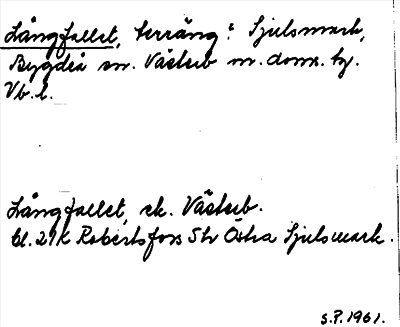 Långfallet, terräng: Sjulsmark,
Bygdeå sn. Västerb n. doms. tg.
Vb. l.
Långfallet, ek. Västerb.
bl. 21K Robertsfors 5h Östra Sjulsmark.
S.P. 1961.